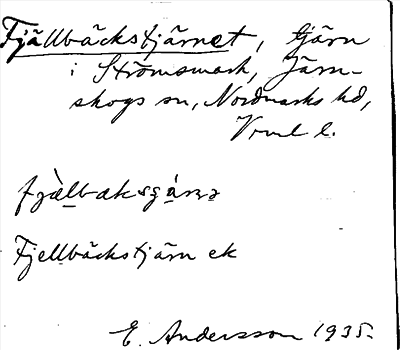 Fjällbäckstjärnet, tjärn
i Strömsmark, Järn-
skogs sn, Nordmarks hd,
Vrml l.
fjälbaksgáṇə
Fjellbäckstjärn ek
E. Andersson 1935.